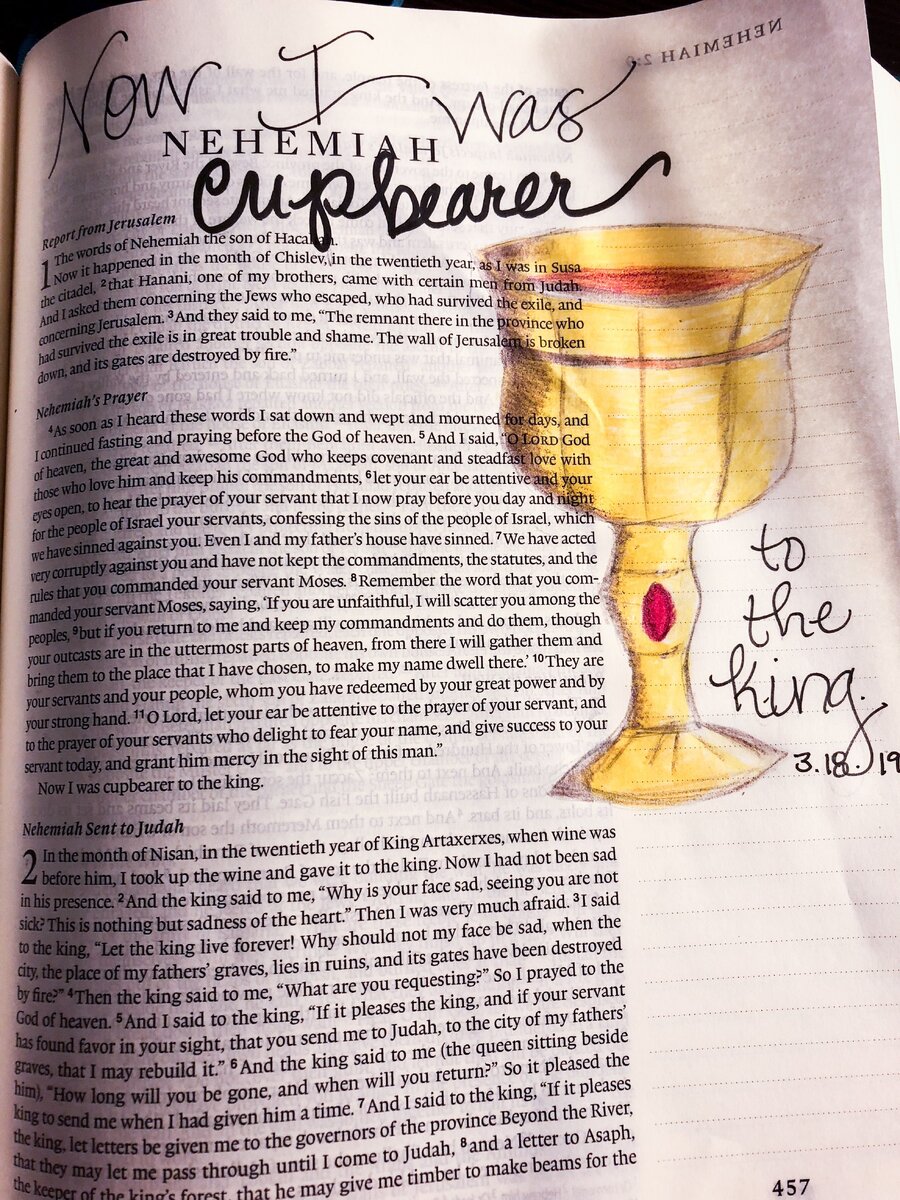 Now I was
NEHEMIAH
Cupbearer
Report from Jerusalem
1 The words of Nehemiah the son of Hacaliah.
Now it happened in the month of Chislev, in the twentieth year, as I was in Susa
the citadel, 2 that Hanani, one of my brothers, came with certain men from Judah.
And I asked them concerning the Jews who escaped, who had survived the exile, and
concerning Jerusalem. 3 And they said to me, “The remnant there in the province who
had survived the exile is in great trouble and shame. The wall of Jerusalem is broken
down, and its gates are destroyed by fire.”
Nehemiah's Prayer
4 As soon as I heard these words I sat down and wept and mourned for days, and
I continued fasting and praying before the God of heaven. 5 And I said, “O LORD God
of heaven, the great and awesome God who keeps covenant and steadfast love with
those who love him and keep his commandments, 6 let your ear be attentive and your
eyes open, to hear the prayer of your servant that I now pray before you day and night
for the people of Israel your servants, confessing the sins of the people of Israel, which
we have sinned against you. Even I and my father's house have sinned. 7 We have acted
very corruptly against you and have not kept the commandments, the statutes, and the
rules that you commanded your servant Moses. 8 Remember the word that you com-
manded your servant Moses, saying, ‘If you are unfaithful, I will scatter you among the
peoples, 9 but if you return to me and keep my commandments and do them, though
your outcasts are in the uttermost parts of heaven, from there I will gather them and
bring them to the place that I have chosen, to make my name dwell there.’ 10 They are
your servants and your people, whom you have redeemed by your great power and by
your strong hand. 11 O Lord, let your ear be attentive to the prayer of your servant, and
to the prayer of your servants who delight to fear your name, and give success to your
servant today, and grant him mercy in the sight of this man.”
Now I was cupbearer to the king.
to
the
king.
3.18.19
Nehemiah Sent to Judah
2 In the month of Nisan, in the twentieth year of King Artaxerxes, when wine was
before him, I took up the wine and gave it to the king. Now I had not been sad
in his presence. 2 And the king said to me, “Why is your face sad, seeing you are not
sick? This is nothing but sadness of the heart.” Then I was very much afraid. 3 I said
to the king, “Let the king live forever! Why should not my face be sad, when the
city, the place of my fathers' graves, lies in ruins, and its gates have been destroyed
by fire?” 4 Then the king said to me, “What are you requesting?” So I prayed to the
God of heaven. 5 And I said to the king, “If it pleases the king, and if your servant
has found favor in your sight, that you send me to Judah, to the city of my fathers'
graves, that I may rebuild it.” 6 And the king said to me (the queen sitting beside
him), “How long will you be gone, and when will you return?” So it pleased the
king to send me when I had given him a time. 7 And I said to the king, “If it pleases
the king, let letters be given me to the governors of the province Beyond the River,
that they may let me pass through until I come to Judah, 8 and a letter to Asaph,
the keeper of the king's forest, that he may give me timber to make beams for the
457